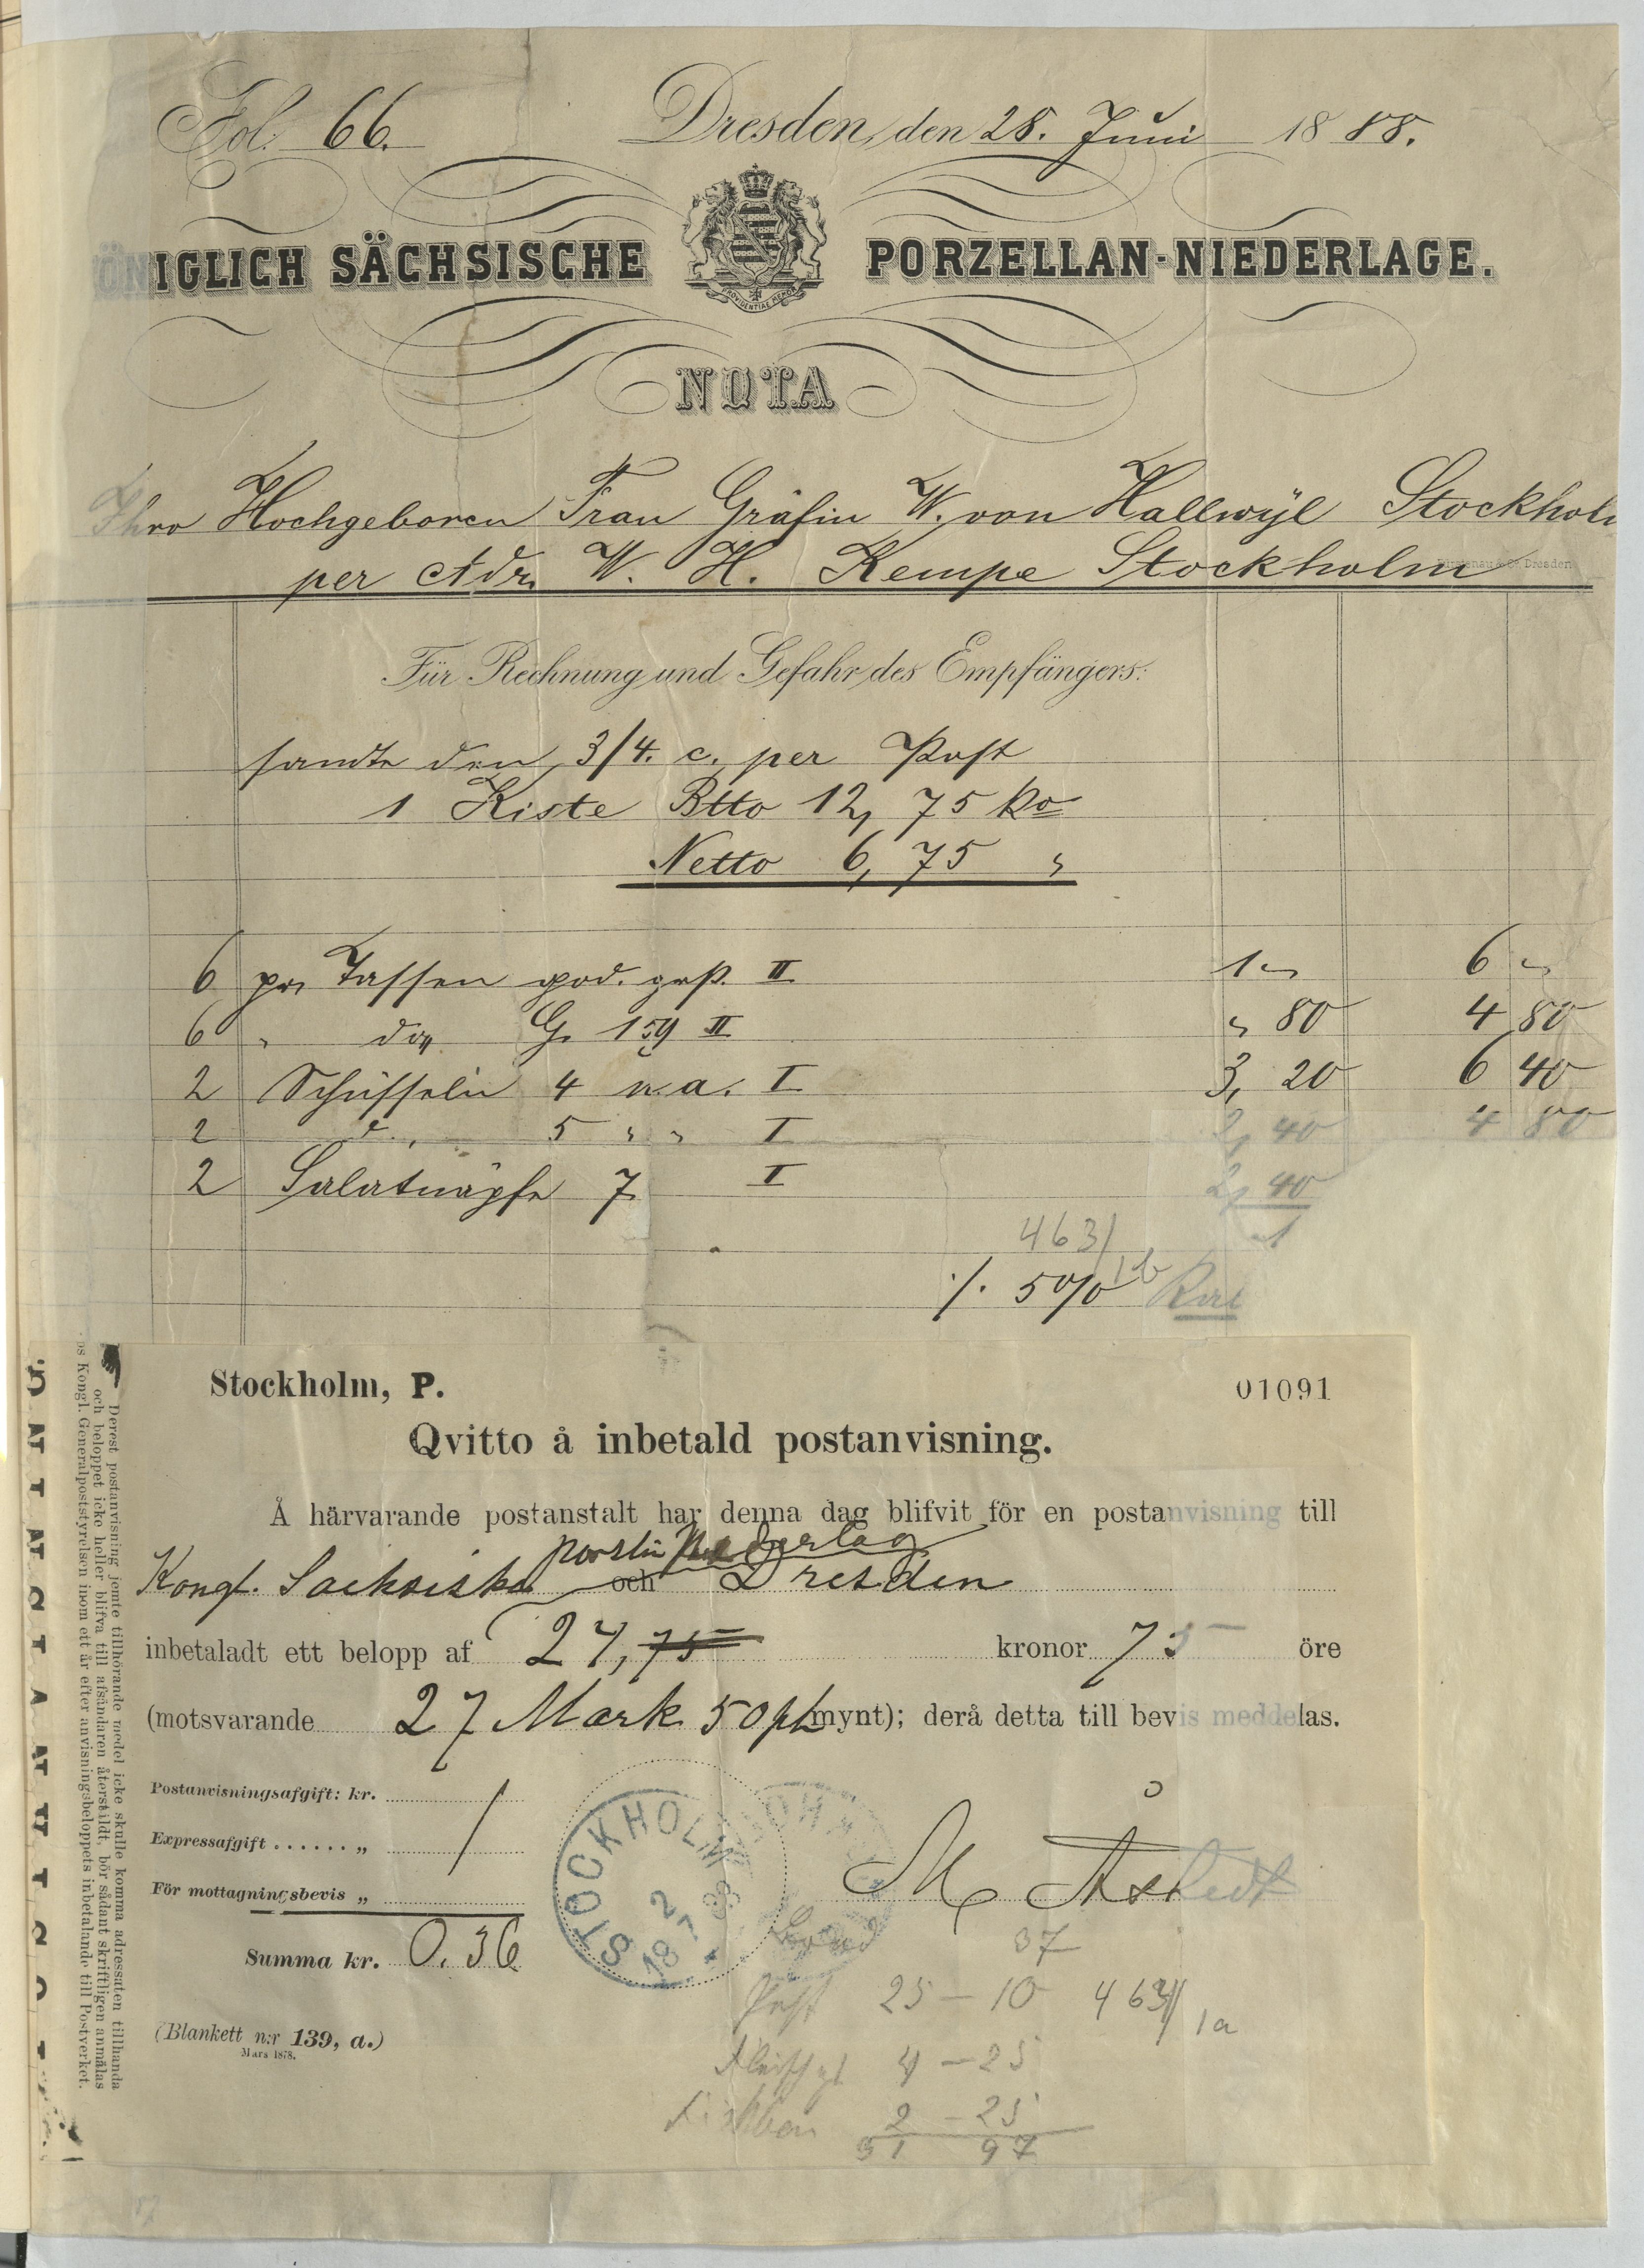 Fol. 66. Dresden, den 28. Juni 1888.
ÖNIGLICH SÄCHSISCHE PORZELLAN-NIEDERLAGE.
PROVIDENTIAE MEMOR
NOTA
Ihro Hochgeboren Frau Gräfin W. von Hallwÿl Stockhol
per Adr. W. H. Kempe Stockholm
Dresden
Für Rechnung und Gefahr des Empfängers:
sandte den 3/4. c. per Post
1 Kiste Btto 12,75 Ko
Netto 6,75 "
6 pr Tassen god. grß. II 1 " 6 "
6 " do G. 159 II " 80 4 80
2 Schüsseln 4 n.a. I 3, 20 6 40
2 d. 5 " " I 2, 40 4 80
2 Salatnäpfe 7 I 2, 40
463/
1b
./. 5%
Stockholm, P. 01091
Qvitto å inbetald postanvisning.
Å härvarande postanstalt har denna dag blifvit för en postanvisning till
porslin Nederlag
Kongl. Sachsiska och Dresden
inbetaladt ett belopp af 24,75 kronor 75 öre
(motsvarande 27 Mark 50 pf mynt); derå detta till bevis meddelas.
Postanvisningsafgift: kr.
Expressafgift ...... „
För mottagningsbevis „
Summa kr. 0.36
STOCKHOLM
2
7
18 88
M
37
25 - 10 463/
1a
4 - 25
2 - 25
31 97
(Blankett n:r 139, a.)
Mars 1878.
Derest postanvisning jemte tillhörande medel icke skulle komma adressaten tillhanda
och beloppet icke heller blifva till afsändaren återstäldt, bör sådant skriftligen anmälas
os Kongl. Generalpoststyrelsen inom ett år efter anvisningsbeloppets inbetalande till Postverket.